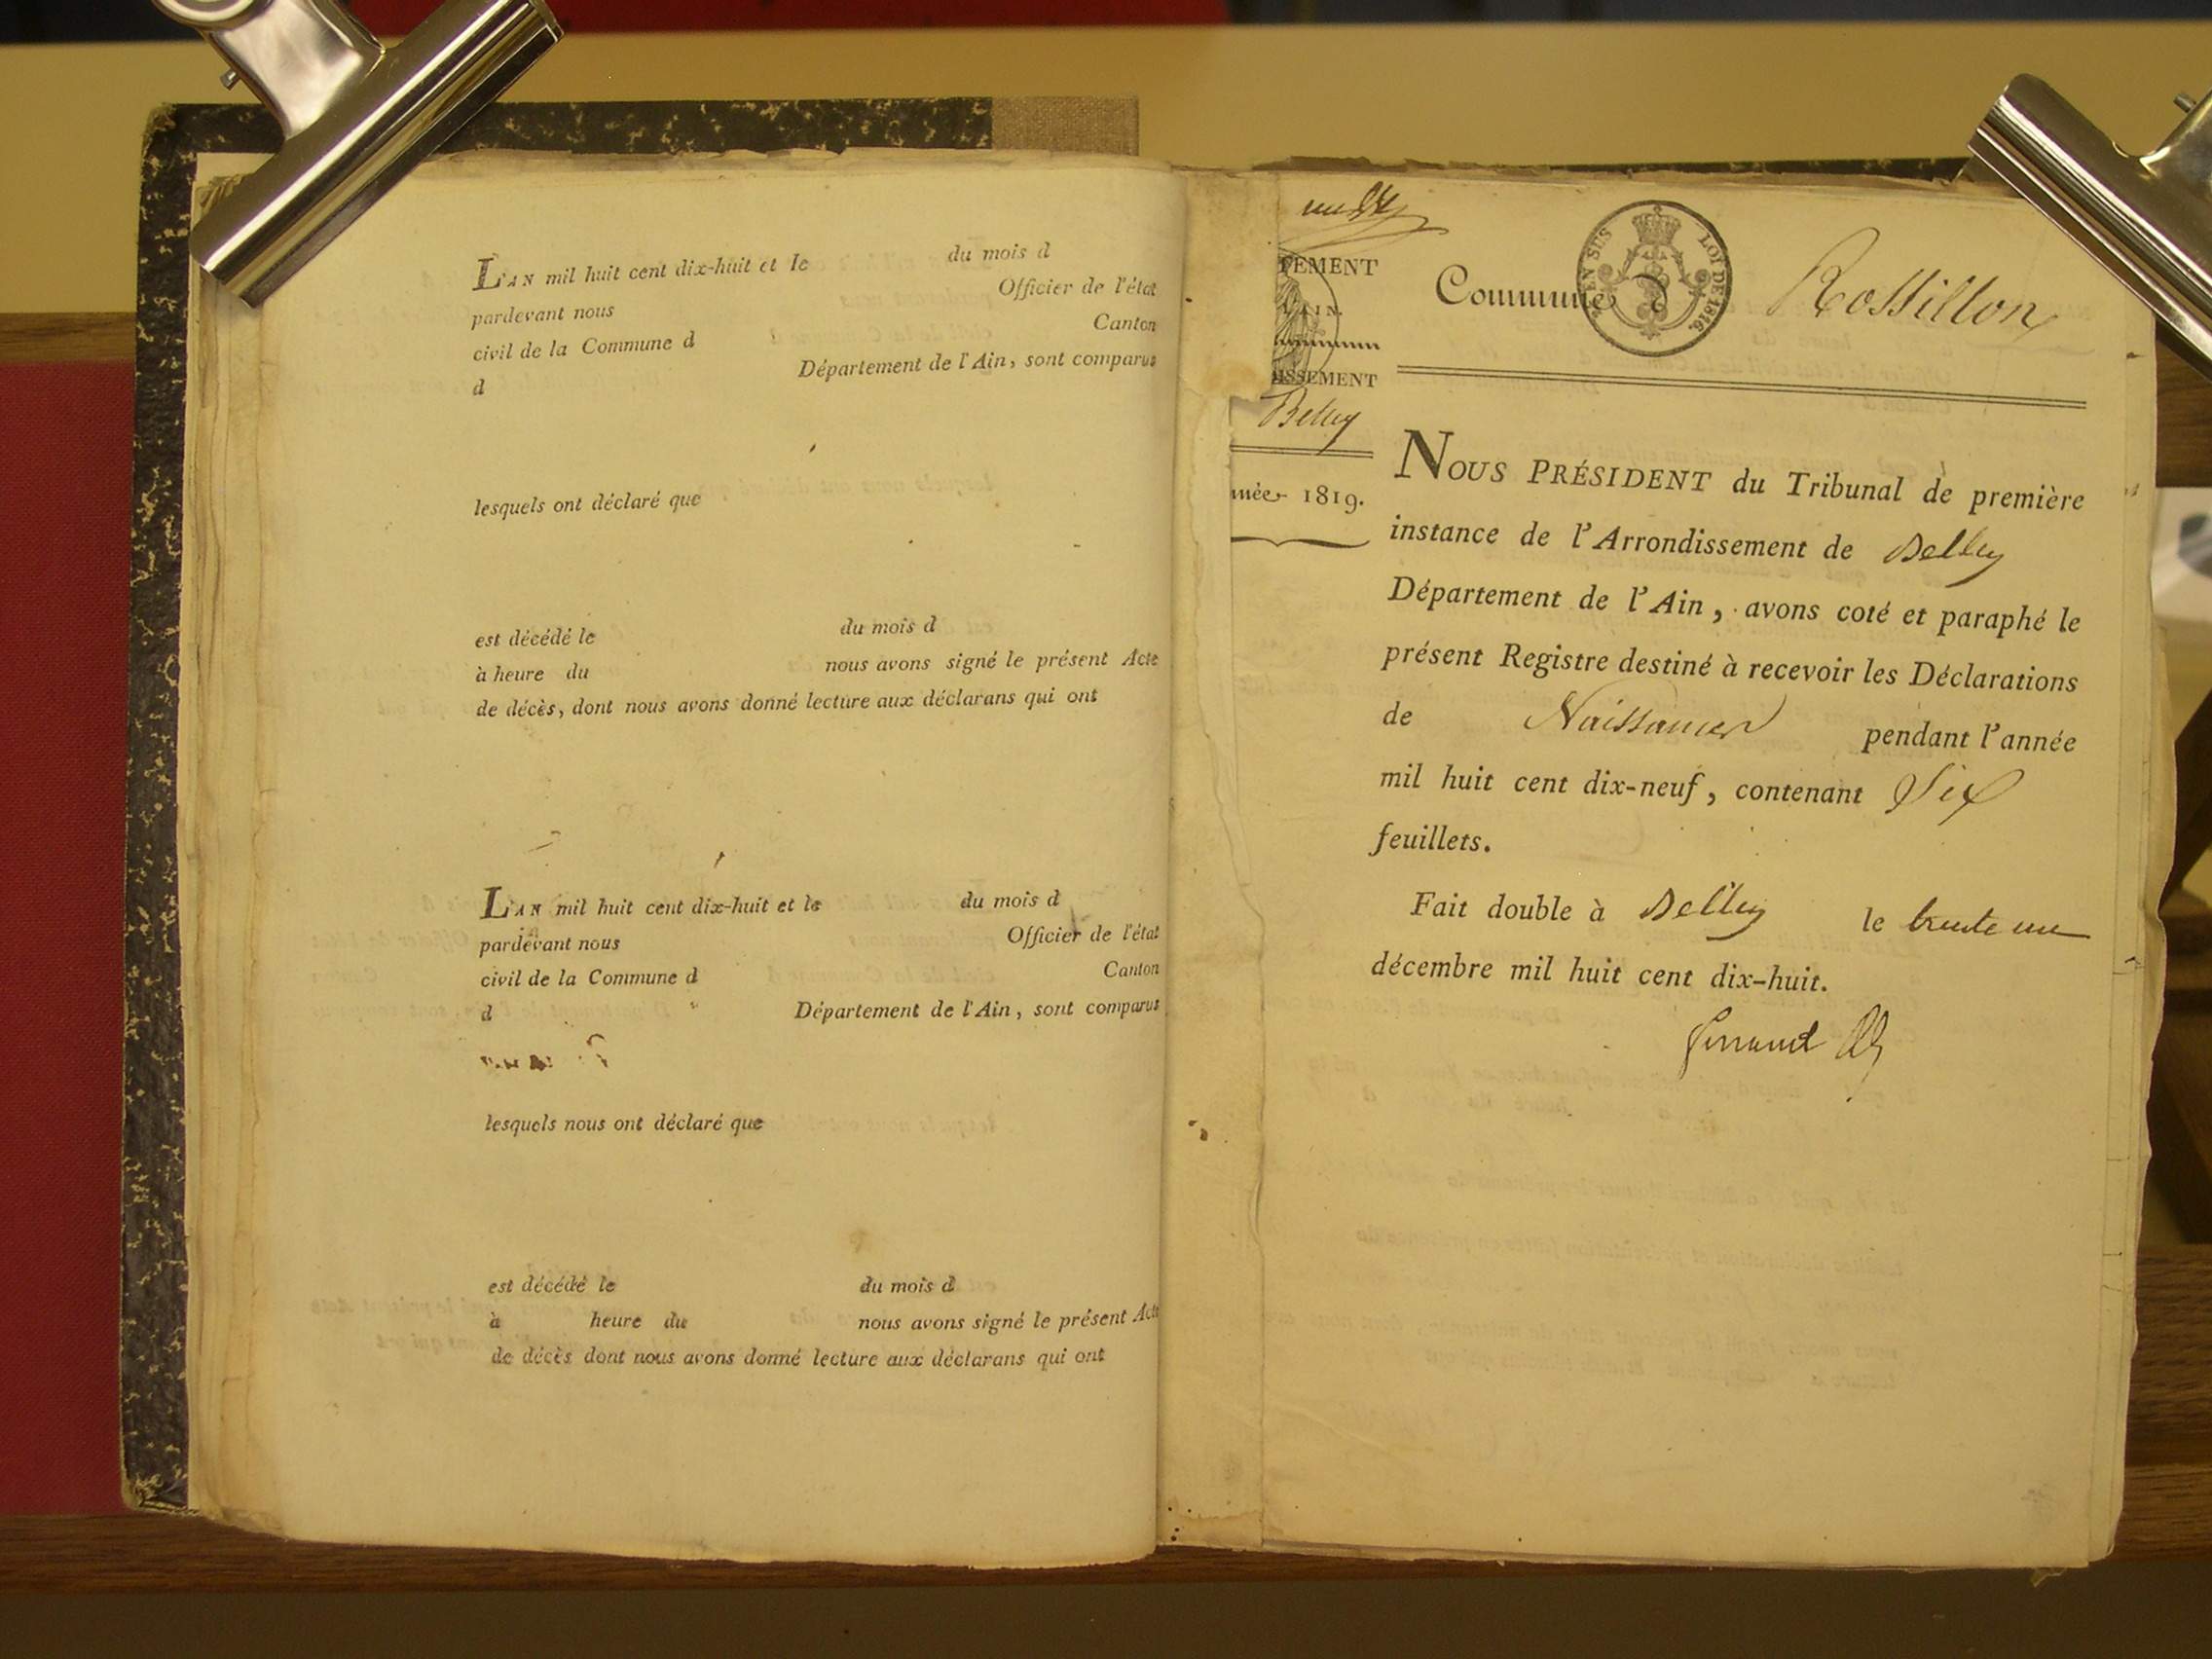 L'AN mil huit cent dix-huit et le du mois d
pardevant nous Officier de l'état
civil de la Commune d Canton
d Département de l'Ain, sont comparus
lesquels ont déclaré que
est décédé le du mois d
à heure du nous avons signé le présent Acte
de décès, dont nous avons donné lecture aux déclarans qui ont
L'AN mil huit cent dix-huit et le du mois d
pardevant nous Officier de l'état
civil de la Commune d Canton
d Département de l'Ain, sont comparus
lesquels nous ont déclaré que
est décédé le du mois d
à heure du nous avons signé le présent Acte
de décès dont nous avons donné lecture aux déclarans qui ont
TEMENT
AIN.
ISSEMENT
Belley
née 1819.
EN SUS LOI DE 1816.
Commune d Rossillon
NOUS PRÉSIDENT du Tribunal de première
instance de l'Arrondissement de Belley
Département de l'Ain, avons coté et paraphé le
présent Registre destiné à recevoir les Déclarations
de Naissances pendant l'année
mil huit cent dix-neuf, contenant Six
feuillets.
Fait double à Belley le trente un
décembre mil huit cent dix-huit.